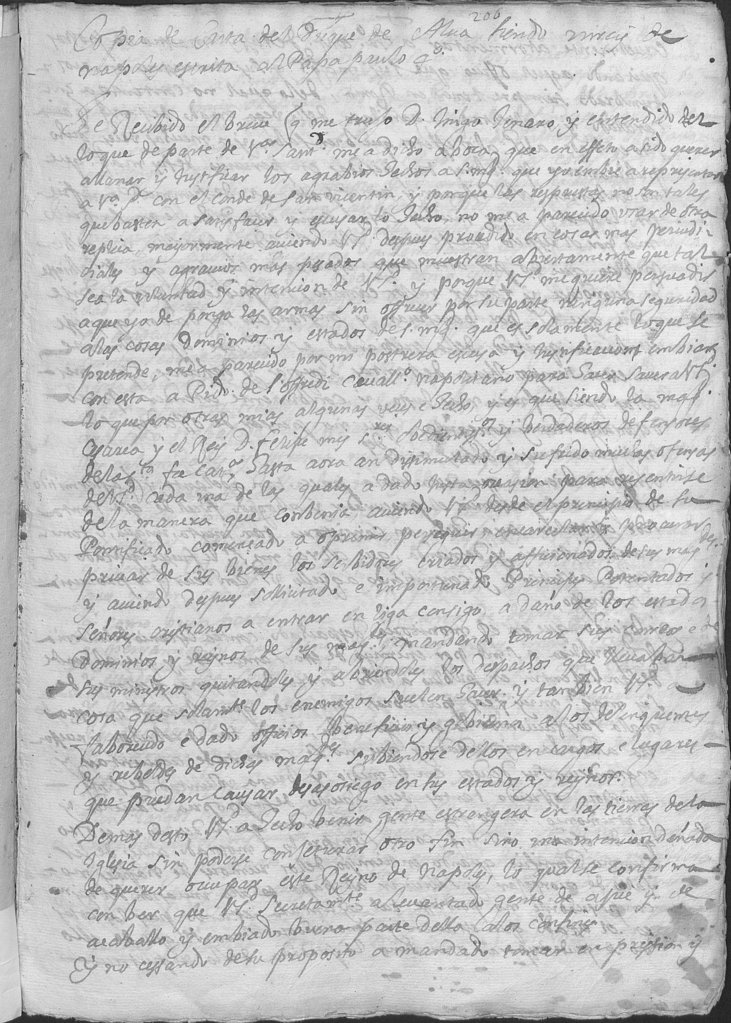 206
Copia de Carta del Duque de Alua siendo virrei de
napoles escrita al Papa paulo 4º.
He Recibido el Breue q me truxo D. Inigo Genaro y entendido del
lo que de parte de Vra Santd me a dicho a boca, que en effeto a sido querer
allanar y Justificar los agrabios hechos a S. Mgd. que yo embie a representar
a Vra Sd con el Conde de San Vicentin, y porque las respuestas no son tales
que basten a satisfacer y escusar lo hecho, no me a parecido usar de otra
replica, mayormente auiendo V. Sd. despues procedido en cosas mas perjudi-
ciales y agrauios mas pesados que muestran abiertamente que tal
sea la voluntad y intencion de V. Sd. y porque V. Sd. me quiere persuadir
a que yo deponga las armas sin offrecer por su parte ninguna seguridad
a las cosas dominios y estados de S. Mgd. que es solamente lo que se
pretende, me a parecido por mi postrera escusa y Justificacion embiar
con esta a Pirro de l'offredi Cauallo. napolitano para hacer sauer a V. Sd.
lo que por otras mias algunas veces e hecho y es que siendo la magd.
Cesarea y el Rey D. felipe mis sres obedientes y verdaderos defensores
de la Sta fee Catca hasta aora an dissimulado y sufrido muchas ofensas
de V. Sd. cada una de las quales a dado Justa ocasion para resentirse
de la manera que conbenia auiendo V. Sd. desde el principio de su
Pontificado comenzado a oprimir perseguir encarcelar y
priuar de sus bienes los serbidores criados y afficionados de sus mgdes.
y auiendo despues solicitado e importunado Principes Potentados y
Señores cristianos a entrar en liga consigo, a daño de los estados
Dominios y reynos de sus mages. mandando tomar sus correos e
sus ministros quitandoles y abriendoles los despachos que lleuaban
cosa que solamte. los enemigos suelen hacer. y tambien V. Sd. a
faborecido e dado officios beneficios y gobierno a los delinquentes
y rebeldes de dichas mages. sirbiendose dellos en cargos e lugares
que puedan causar desasosiego en sus estados y reynos.
Demas desto V. Sd. a hecho benir gente estrangera en las tierras de la
Iglesia sin poderse conjeturar otro fin sino una intencion dañada
de querer ocupar este Reyno de Napoles, lo qual se confirma
con ber que V. Sd. Secretamte a leuantado gente de a pie y de
a caballo y embiado buena parte della a los confines
y no cessando de su proposito a mandado tomar en prission y